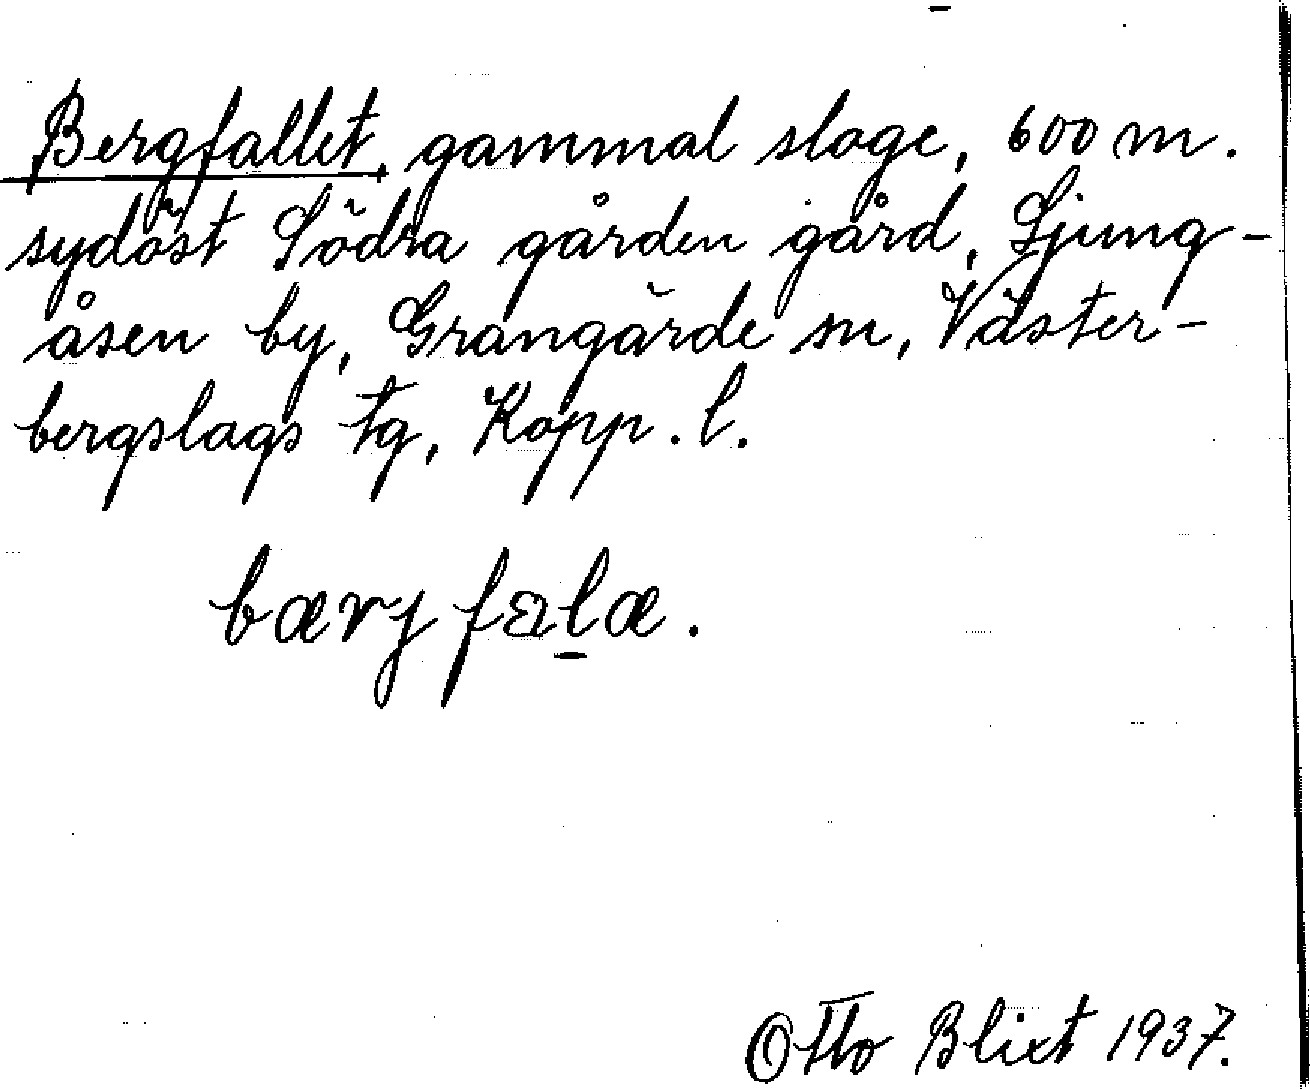 Bergfallet, gammal sloge, 600 m.
sydöst Södra gården gård, Ljung-
åsen by, Grangärde sn, Väster-
bergslags tg, Kopp. l.
bærjfalæ.
Otto Blixt 1937.